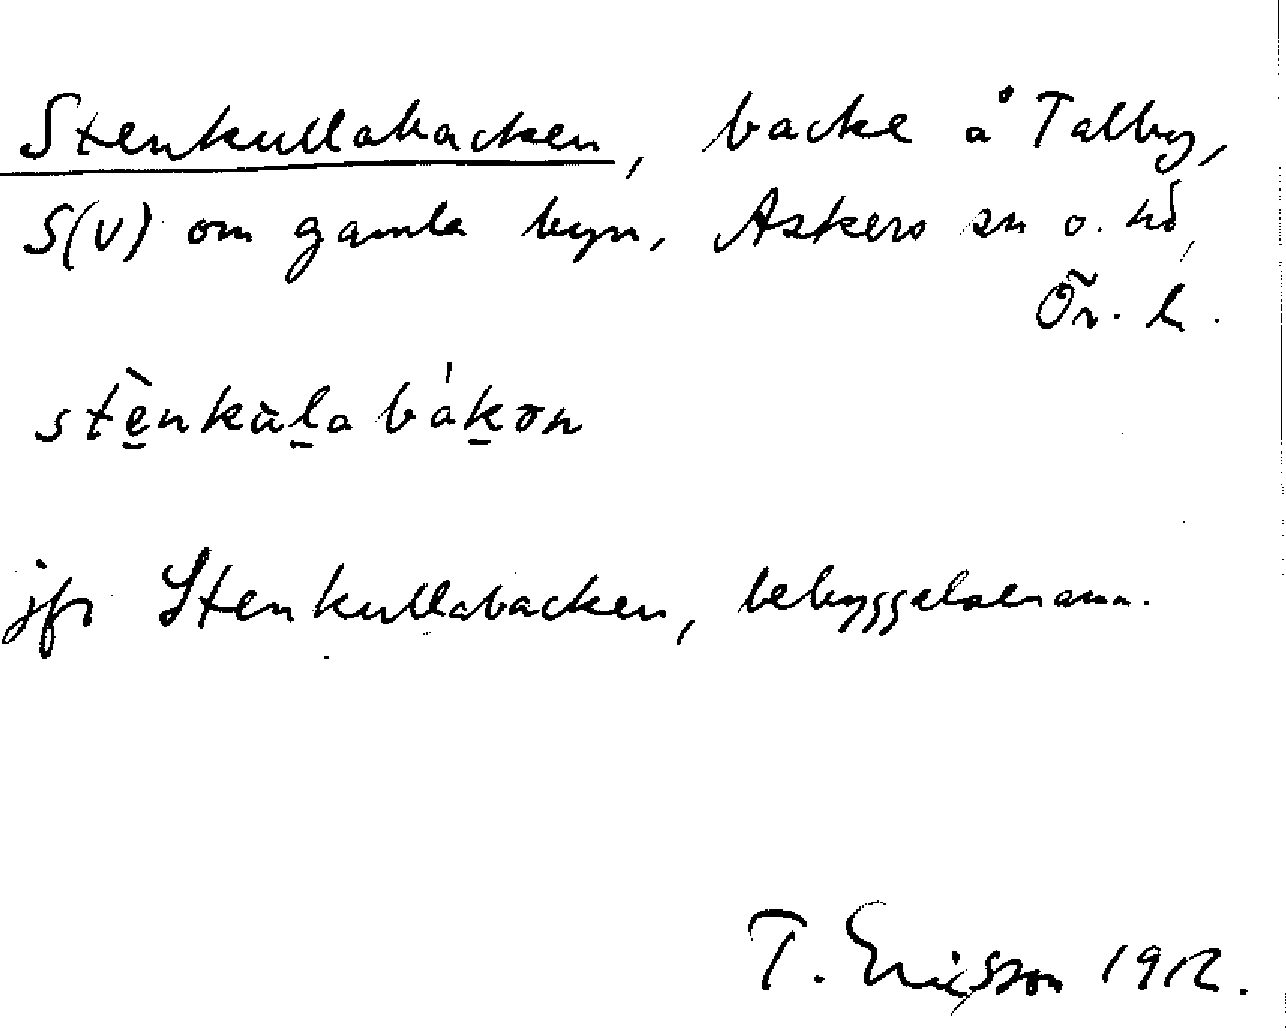 Stenkullabacken, backe å Talby,
S(V) om gamla byn, Askers sn o. hd,
Ör. l.
stènkùla bákɷn
jfr Stenkullabacken, bebyggelsenamn.
T. Ericsson 1912.